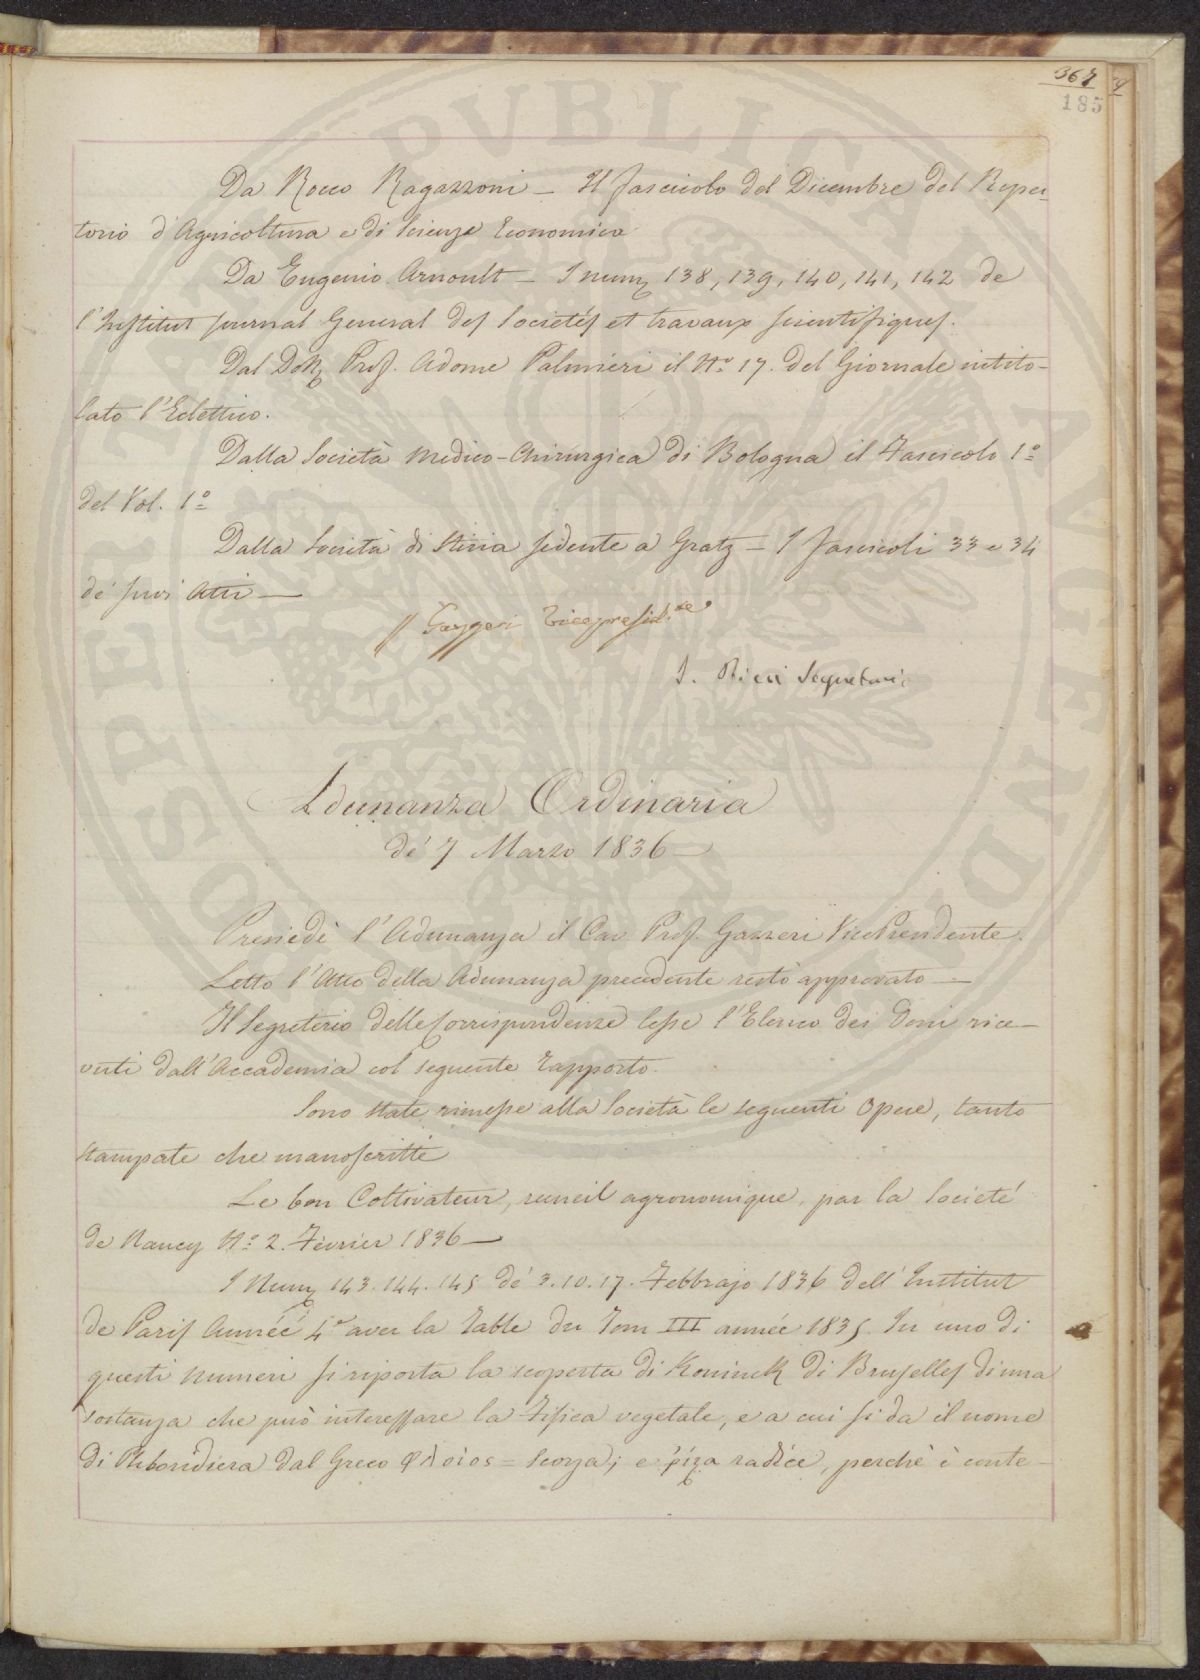 367
185
Da Rocco Ragazzoni – Il fascicolo del Dicembre del Reper-
torio d'Agricoltura e di Scienze Economico
Da Eugenio Arnoult – I num. 138, 139, 140, 141, 142 de
l'Institut Journal General des Societés et travaux scientifiques.
Dal Dott. Prof. Adome Palmieri il No. 17. del Giornale intito-
lato l'Eclettico.
Dalla Società medico-Chirurgica di Bologna il Fascicolo 1o
del Vol. 1o
Dalla Società di Stiria sedente a Gratz – I fascicoli 33 e 34
de' suoi Atti –
Gazzeri Vicepresid.te
Ricci Segretario
Adunanza Ordinaria
de' 7 Marzo 1836 –
Presiedè l'Adunanza il Cav Prof. Gazzeri VicePresidente.
Letto l'Atto della Adunanza precedente restò approvato –
Il Segreterio delle Corrispondenze lesse l'Elenco dei Doni rice-
vuti dall'Accademia col seguente rapporto.
Sono state rimesse alla Società le seguenti Opere, tanto
stampate che manoscritte
Le bon Coltivateur, recueil agronomique, par la Societé
de Nancy No. 2. Février 1836 –
I Num. 143. 144. 145 de' 3. 10. 17. Febbrajo 1836 dell'Institut
de Paris Année 4e avec la Table du Tom III année 1835. In uno di
questi numeri si riporta la scoperta di Koninck di Bruselles di una
sostanza che può interessare la Fisica vegetale, e a cui si da il nome
di dal Greco φλοιος = Scorza; e ῥίζα radíce, perchè è conte-
SOSPITATI PVBLICAE AVGENDAE